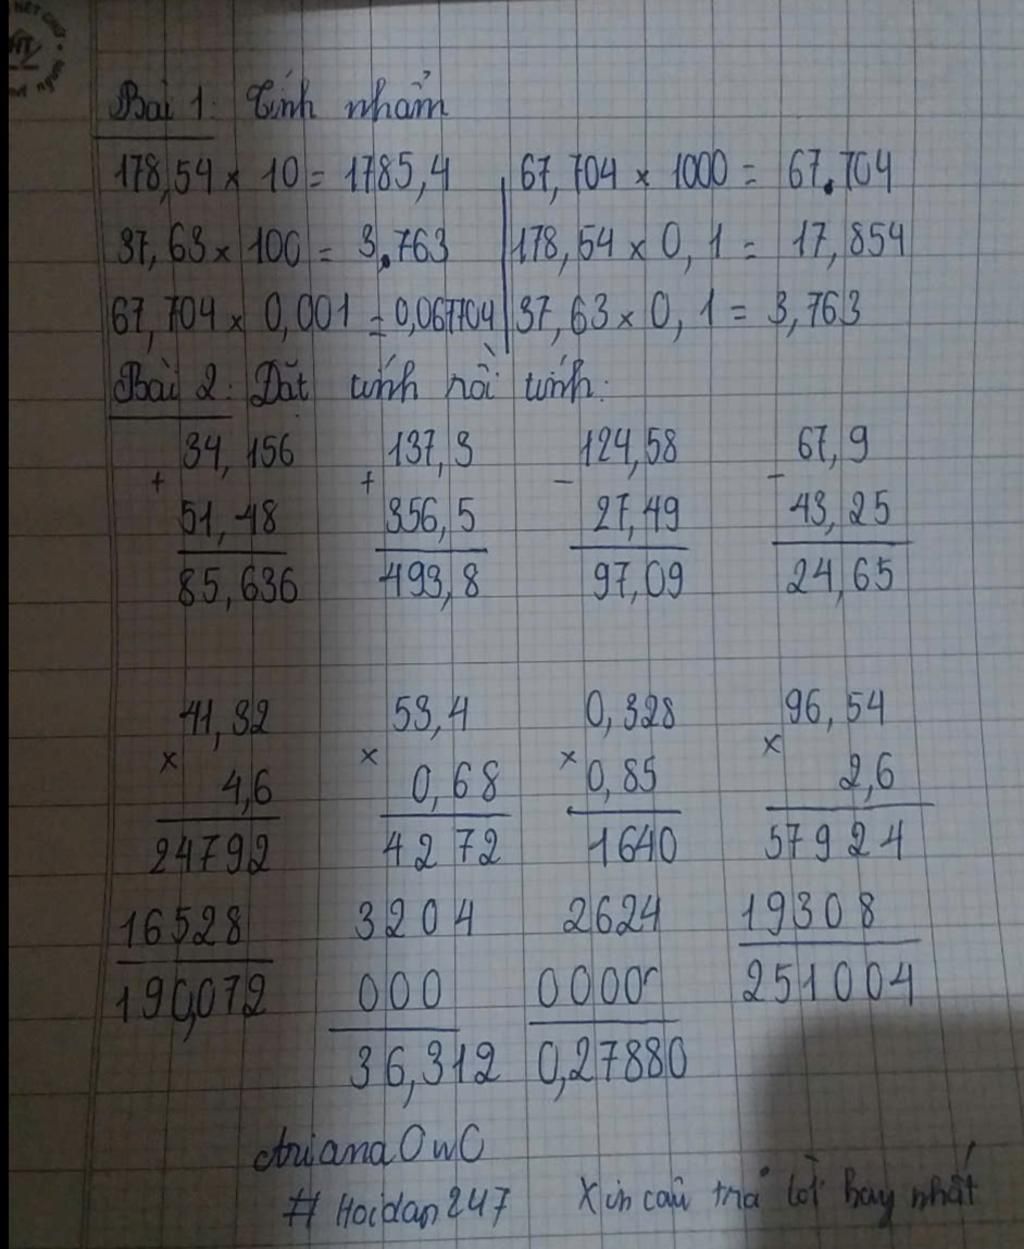 Bài 1: Tính nhẩm
178,54 x 10 = 1785,4 67,704 x 1000 = 67.704
37,63 x 100 = 3.763 178,54 x 0,1 = 17,854
67,704 x 0,001 = 0,067704 37,63 x 0,1 = 3,763
Bài 2: Đặt tính rồi tính:
34,156 137,3 124,58 67,9
+ + - -
51,48 356,5 27,49 43,25
85,636 493,8 97,09 24,65
41,32 53,4 0,328 96,54
x x x x
4,6 0,68 0,85 2,6
24792 4272 1640 57924
16528 3204 2624 19308
190,072 000 0000 251004
36,312 0,27880
Ariana OwO
# Hoidap247 Xin câu trả lời hay nhất